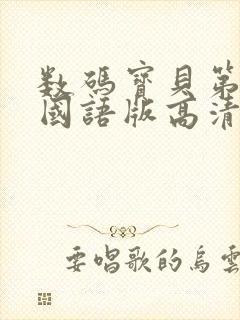 数碼寶貝第
國語版高清
要唱歌的烏雲